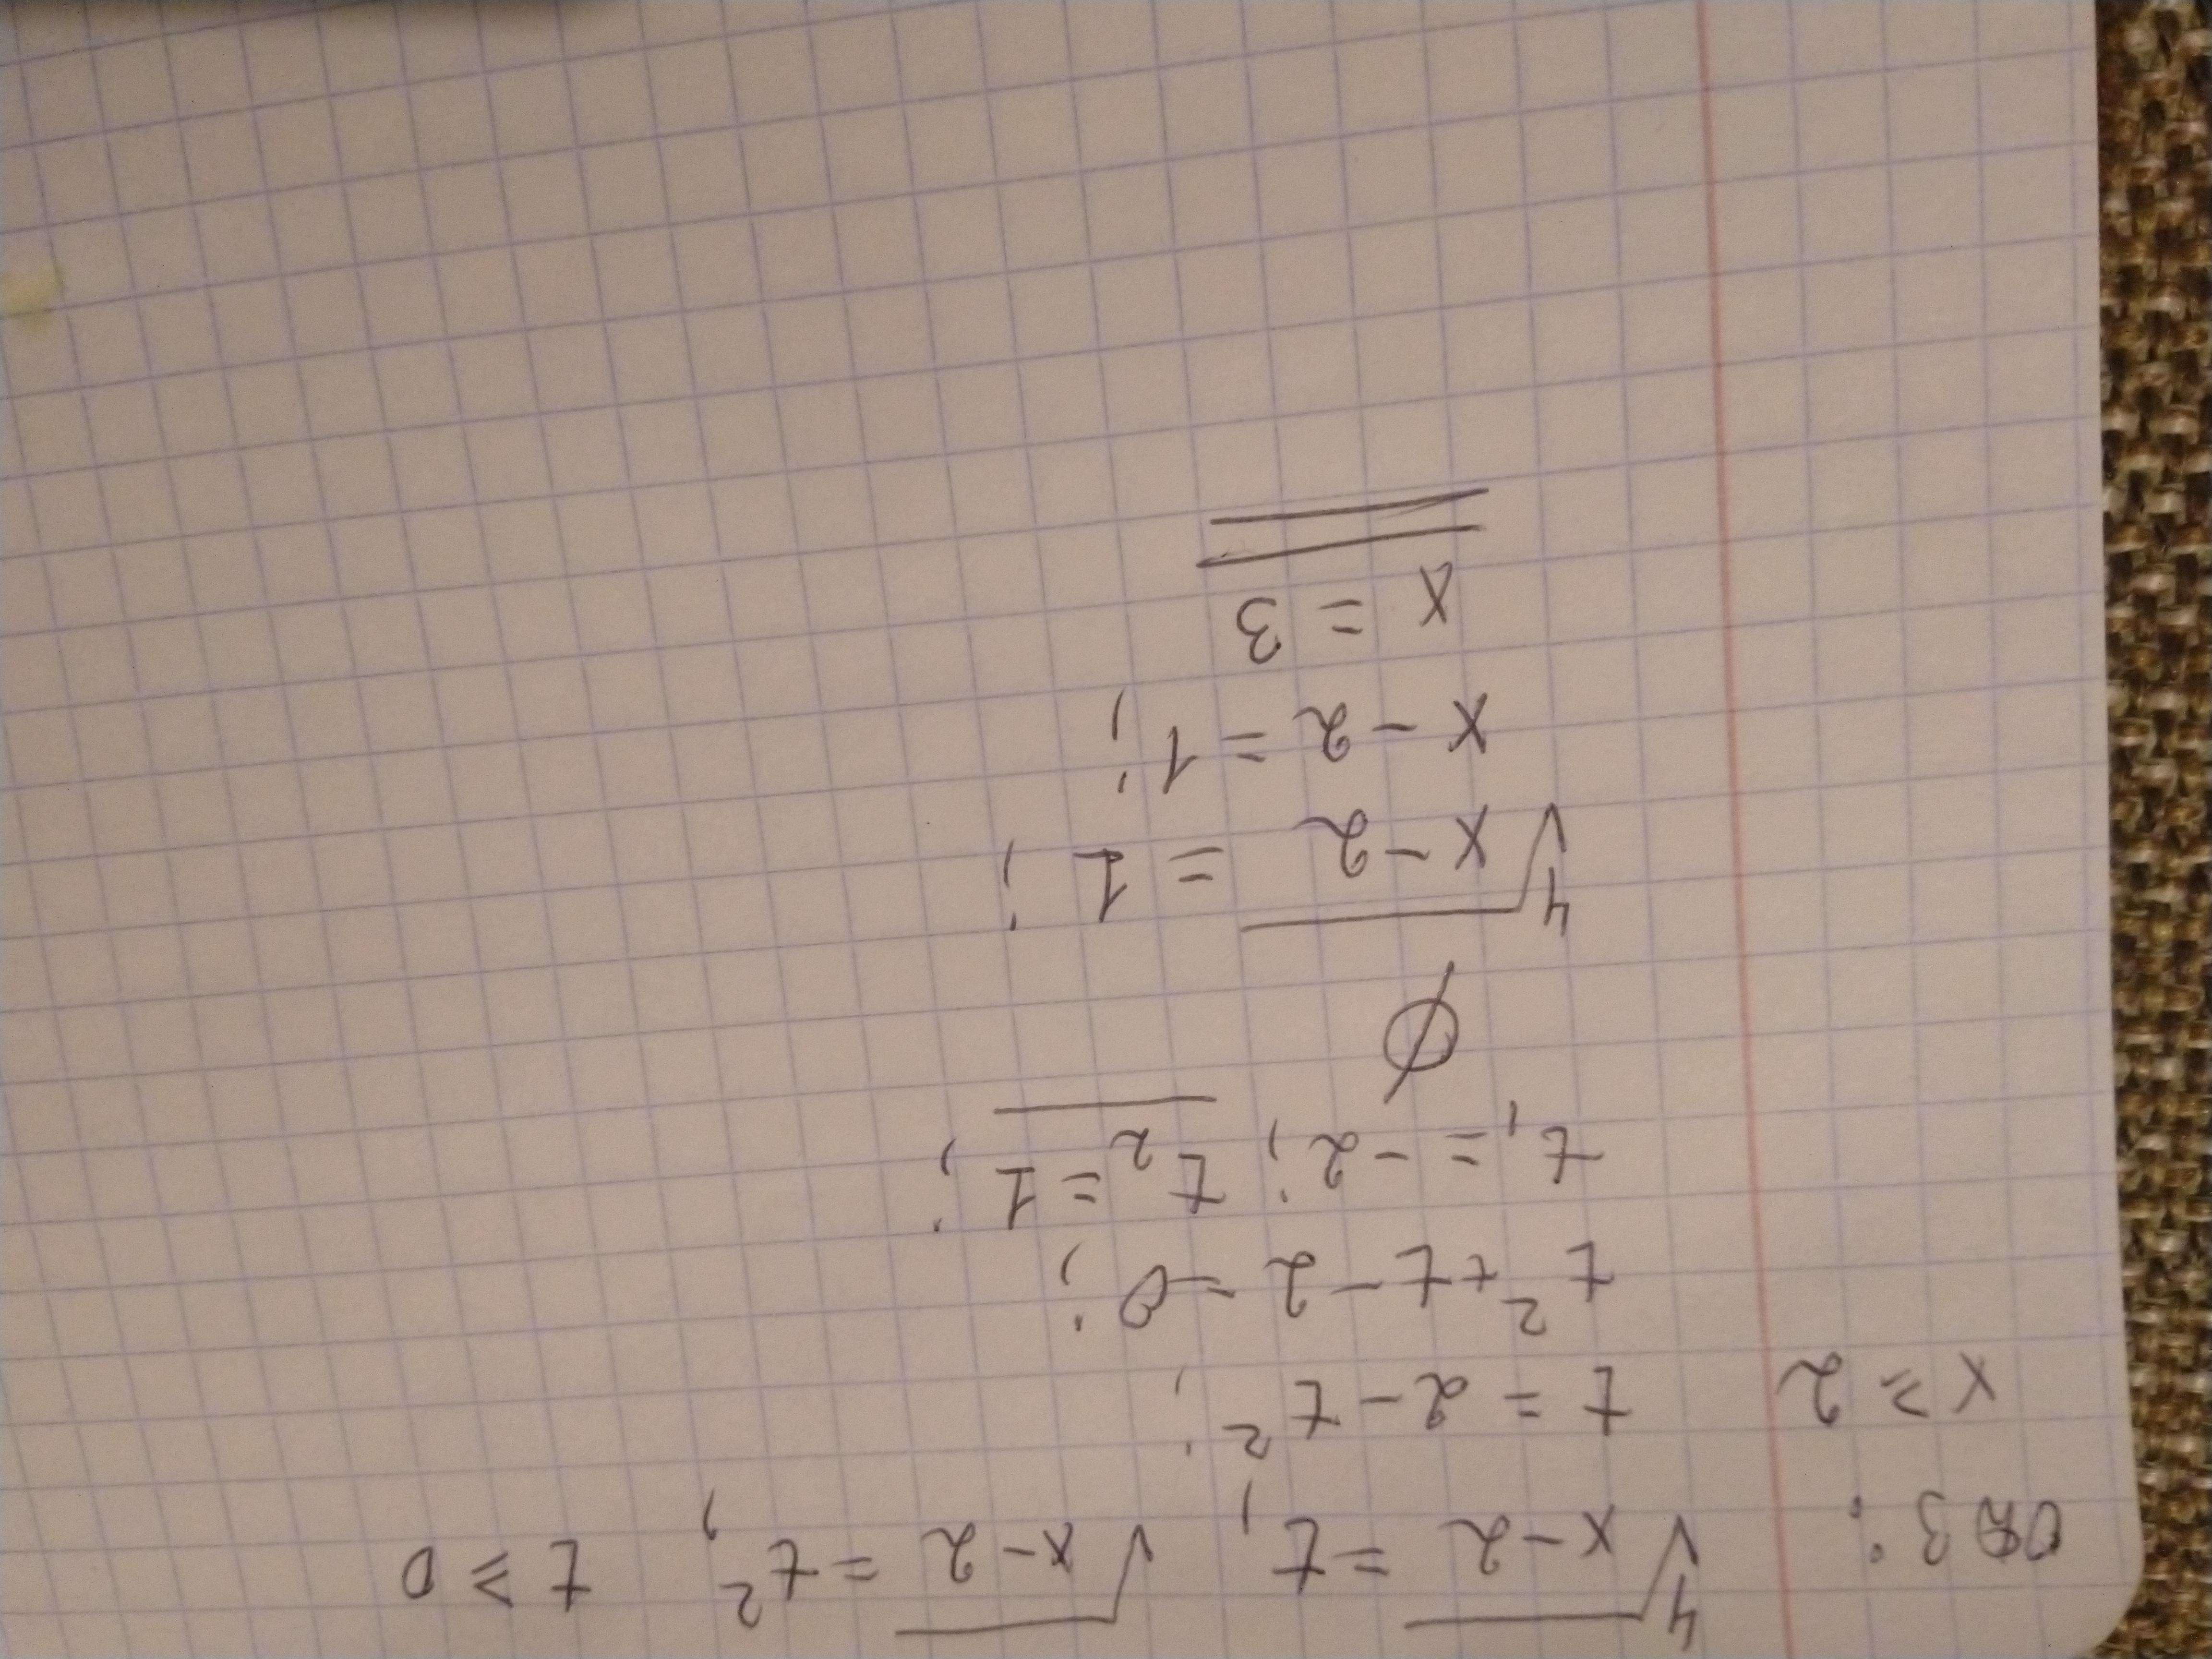 ОДЗ: ⁴√x-2 = t; √x-2 = t², t ≥ 0
x ≥ 2 t = 2 - t²;
t² + t - 2 = 0;
t₁ = -2; t₂ = 1;
∅
⁴√x-2 = 1;
x - 2 = 1;
x = 3